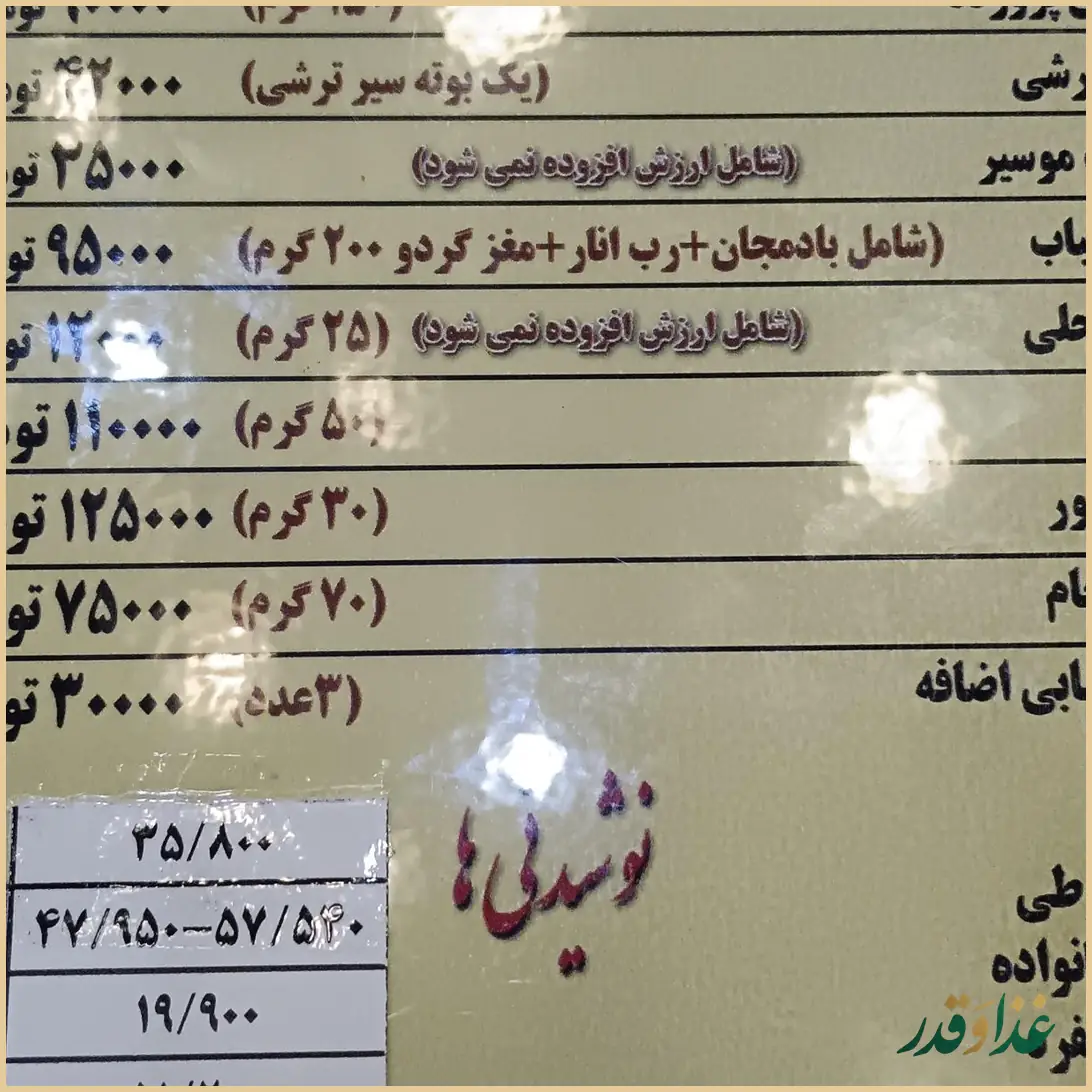 رشی (یک بوته سیر ترشی) ۴۲۰۰۰ تو
موسیر (شامل ارزش افزوده نمی شود) ۳۵۰۰۰ تو
باب (شامل بادمجان+رب انار+مغز گردو ۲۰۰ گرم) ۹۵۰۰۰ تو
حلی (شامل ارزش افزوده نمی شود) (۲۵ گرم) ۱۲۰۰۰ تو
(۵۰ گرم) ۱۱۰۰۰۰ تو
ور (۳۰ گرم) ۱۲۵۰۰۰ تو
ام (۷۰ گرم) ۷۵۰۰۰ تو
ابی اضافه (۳عدد) ۳۰۰۰۰ تو
نوشیدنی ها
طی ۳۵/۸۰۰
نواده ۴۷/۹۵۰-۵۷/۵۴۰
فره ۱۹/۹۰۰
غذا و قدر